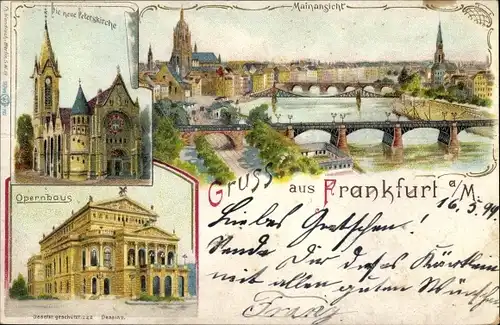 Die neue Peterskirche
Mainansicht
Opernhaus
Gruss aus Frankfurt a/M.
16.5.99
Liebes Gretchen!
Sende Dir dieses Kärtlein
mit allen guten Wünschen
Franz
Gesetzl. geschützt. Dessins.